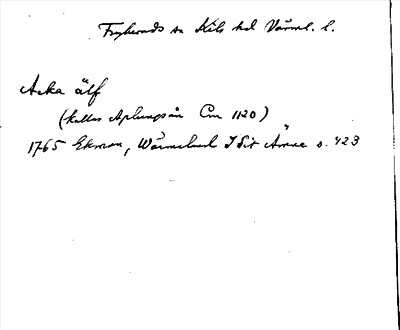 Fryksände sn Kils hd Värml. l.
Acka älf
(kallas Aplungsån Cm 1120)
1765 Ekman, Wärmeland I Sit Ämne s. 423